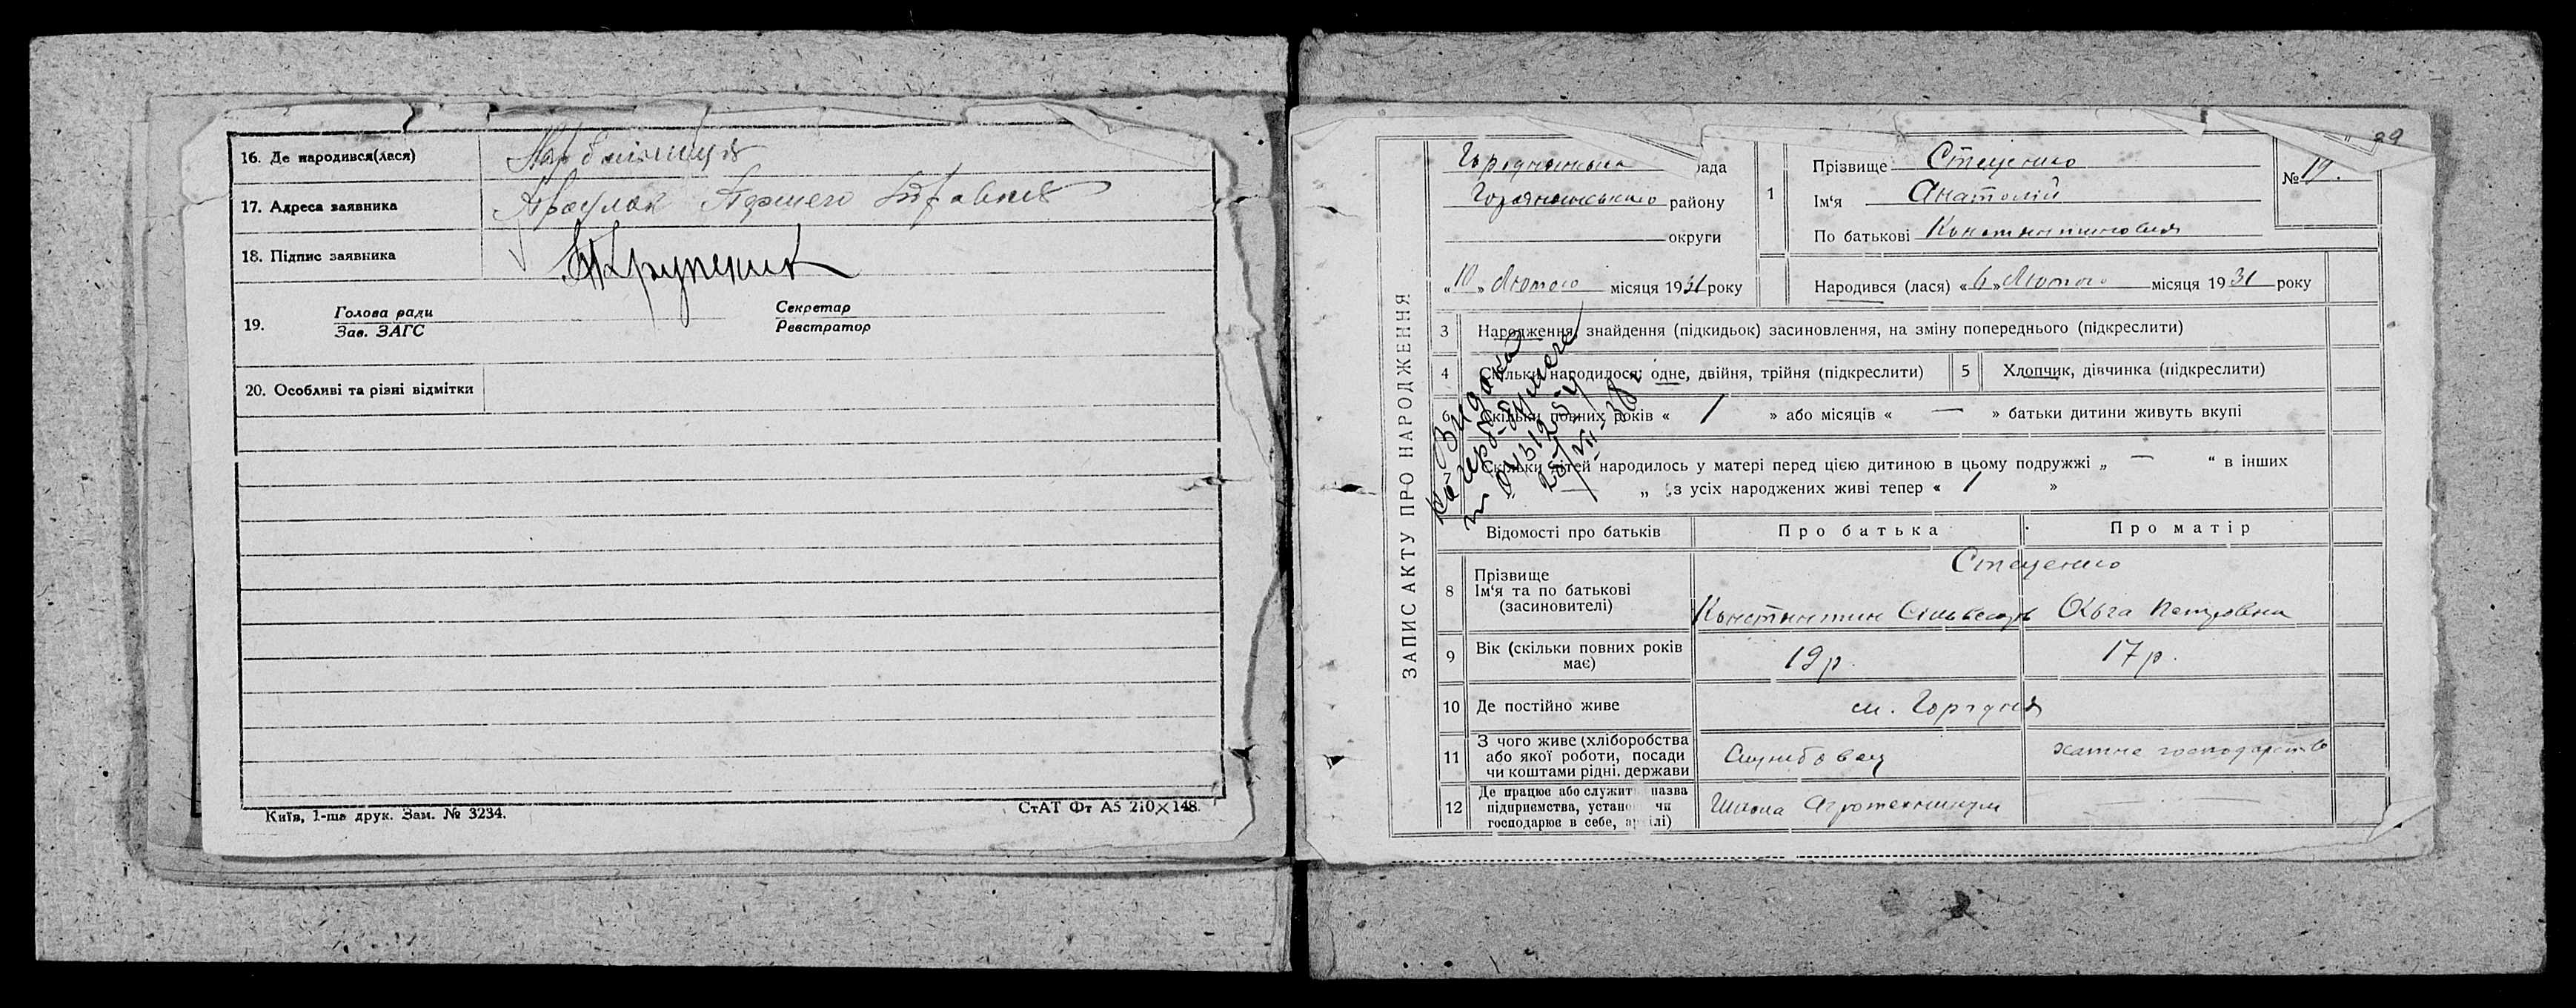 16. Де народився(лася)
17. Адреса заявника Першого
18. Підпис заявника
19. Голова ради Секретар
Зав. ЗАГС Реєстратор
20. Особливі та різні відмітки
Київ, 1-ша друк. Зам. № 3234.
СтАТ Фт А5 210×148.
99
ЗАПИС АКТУ ПРО НАРОДЖЕННЯ
Городнянська рада
Городнянського району
округи
«10» Лютого місяця 1931 року
1 Прізвище Стеценко
Ім‘я Анатолій
По батькові Константинович
№ 19.
Народився (лася) «6» Лютого місяця 1931 року
3 Народження, знайдення (підкидьок) засиновлення, на зміну попереднього (підкреслити)
4 Скільки народилося: одне, двійня, трійня (підкреслити) 5 Хлопчик, дівчинка (підкреслити)
6 Скільки повних років « 1 » або місяців « — » батьки дитини живуть вкупі
Скільки дітей народилось у матері перед цією дитиною в цьому подружжі „ — “ в інших
„ із усіх народжених живі тепер « 1 »
Відомості про батьків Про батька Про матір
8 Прізвище
Ім‘я та по батькові
(засиновителі)
Стеценко
Константин Ольга Петровна
9 Вік (скільки повних років
має) 19 р. 17 р.
10 Де постійно живе м. Городня
11 З чого живе (хліборобства
або якої роботи, посади
чи коштами рідні, держави
Службовец хатне господарство
12 Де працює або служить назва
підприємства, установ чи
господарює в себе, артілі)
Школа Агротехникум —